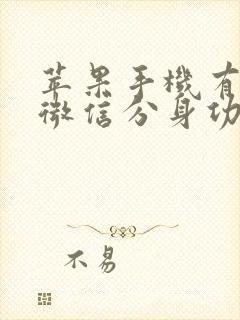 苹果手機有
微信分身功
不易